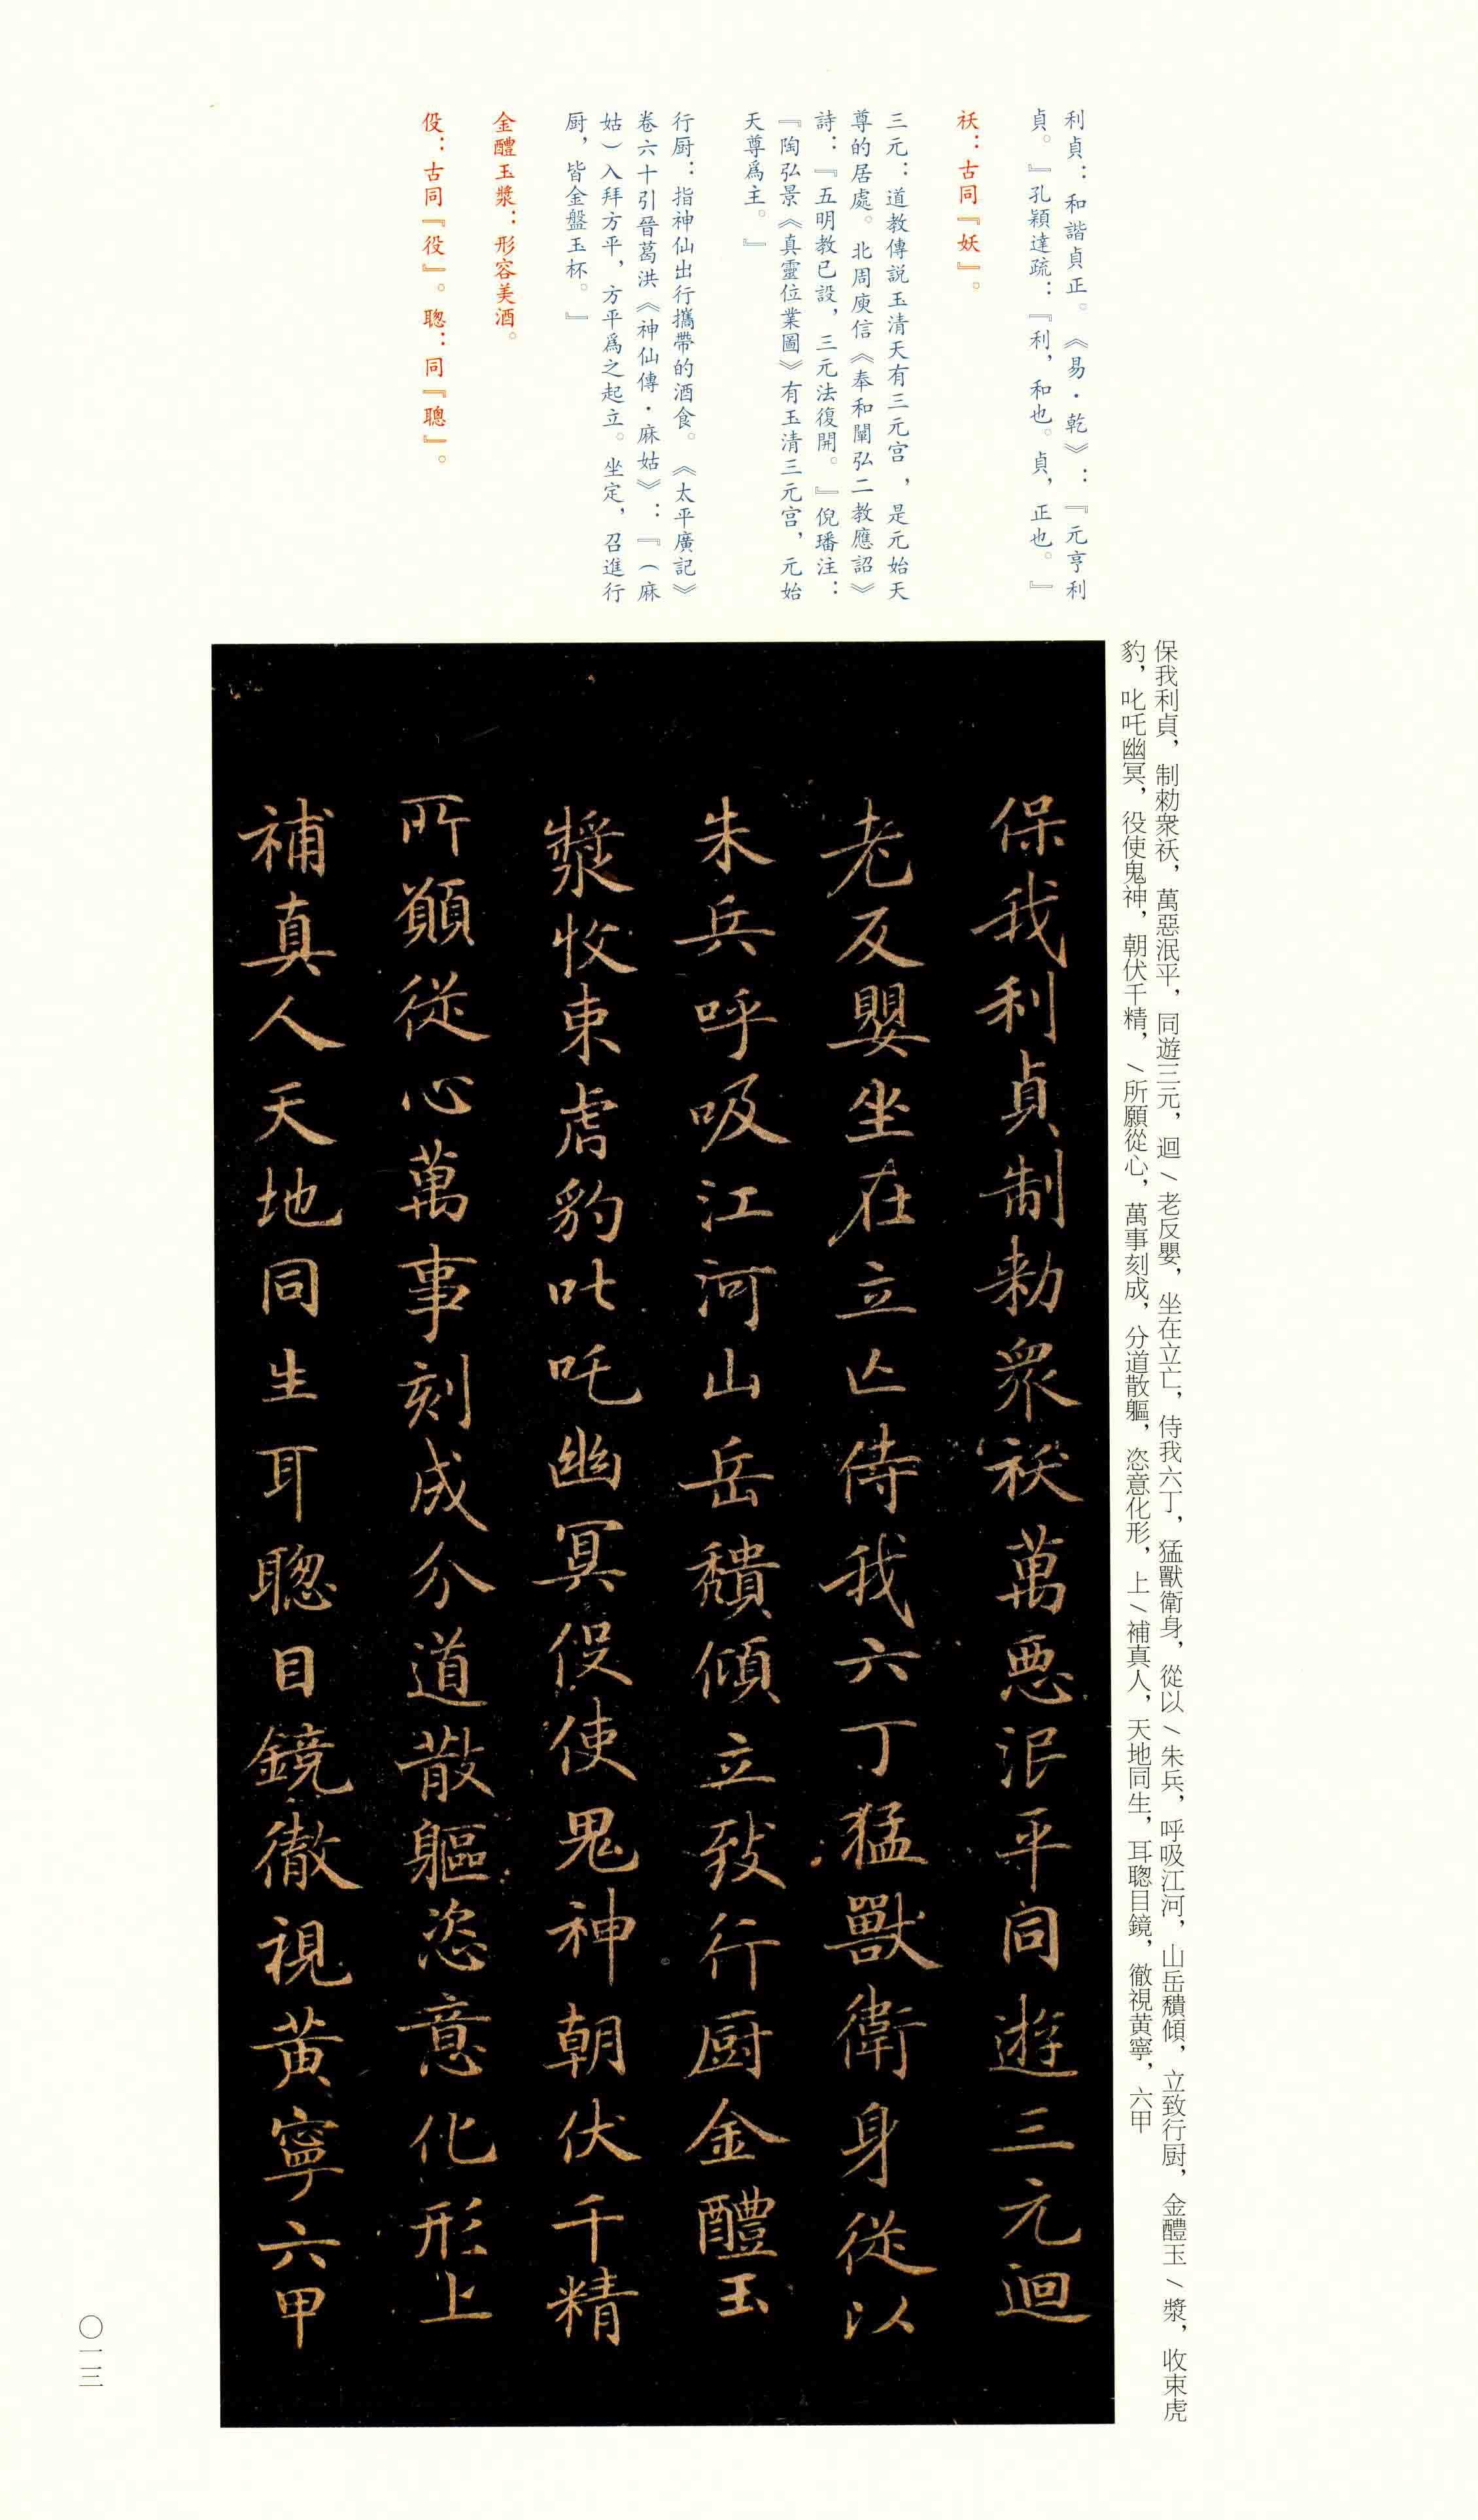 利貞：和諧貞正。《易·乾》：『元亨利
貞。』孔穎達疏：『利，和也。貞，正也。』
祅：古同『妖』。
三元：道教傳説玉清天有三元宫，是元始天
尊的居處。北周庾信《奉和闡弘二教應詔》
詩：『五明教已設，三元法復開。』倪璠注：
『陶弘景《真靈位業圖》有玉清三元宫，元始
天尊爲主。』
行厨：指神仙出行攜帶的酒食。《太平廣記》
卷六十引晉葛洪《神仙傳·麻姑》：『（麻
姑）入拜方平，方平爲之起立。坐定，召進行
厨，皆金盤玉杯。』
金醴玉漿：形容美酒。
伇：古同『役』。聦：同『聰』。
保我利貞，制勑衆祅，萬惡泯平，同遊三元，迴/老反嬰，坐在立亡，侍我六丁，猛獸衛身，從以/朱兵，呼吸江河，山岳穨傾，立致行厨，金醴玉/漿，收束虎
豹，叱吒幽冥，役使鬼神，朝伏千精，/所願從心，萬事刻成，分道散軀，恣意化形，上/補真人，天地同生，耳聦目鏡，徹視黄寧，六甲
保我利貞制勑衆祅萬惡泯平同遊三元迴
老反嬰坐在立亡侍我六丁猛獸衛身從以
朱兵呼吸江河山岳穨傾立致行厨金醴玉
漿收束虎豹叱吒幽冥伇使鬼神朝伏千精
所願從心萬事刻成分道散軀恣意化形上
補真人天地同生耳聦目鏡徹視黄寧六甲
〇一三